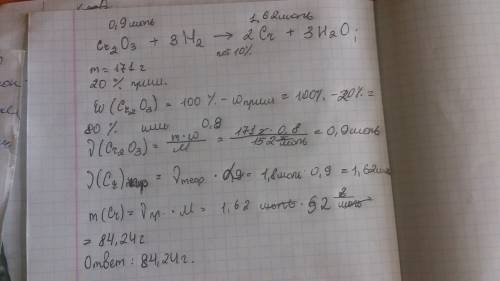 0,9 моль 1,62 моль
Cr₂O₃ + 3H₂ → 2Cr + 3H₂O;
пот 10%
m = 171 г
20% прим.
ω(Cr₂O₃) = 100% - ω прим = 100% - 20% =
80% или 0,8
ν(Cr₂O₃) = m·ω/M = 171 г · 0,8/152 г/моль = 0,9 моль
ν(Cr) пр = ν теор · 0,9 = 1,8 моль · 0,9 = 1,62
m(Cr) = ν пр. · M = 1,62 моль · 52 г/моль
= 84,24 г
Ответ: 84,24 г.